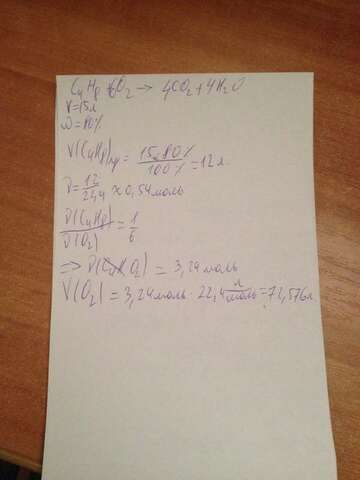 C₄H₈ + 6O₂ → 4CO₂ + 4H₂O
V = 15л
ω = 80%
V(C₄H₈)пр = 15 · 80% / 100% = 12 л
ν = 12 / 22,4 ≈ 0,54 моль
ν(C₄H₈) / ν(O₂) = 1 / 6
=> ν(O₂) = 3,24 моль
V(O₂) = 3,24 моль · 22,4 л/моль = 72,576 л